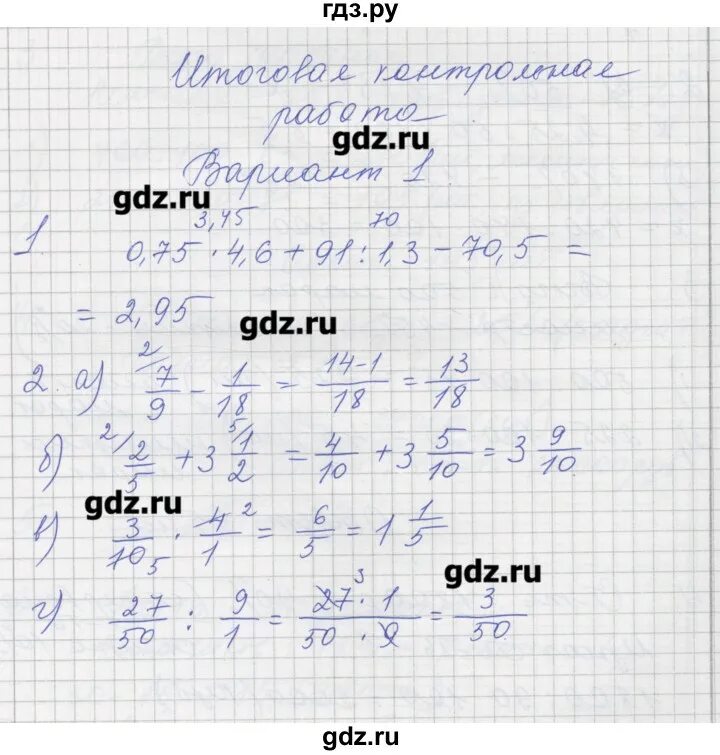 гдз.ру
Итоговая контрольная
работа
gdz.ru
Вариант 1
gdz.ru
3,45 70
1 0,75 · 4,6 + 91 : 1,3 − 70,5 =
= 2,95
gdz.ru
2. а) 2/ 7/9 − 1/18 = 14-1/18 = 13/18
б) 2/ 2/5 + 3 5/ 1/2 = 4/10 + 3 5/10 = 3 9/10
gdz.ru
в) 3/10 5 · 4/1 2 = 6/5 = 1 1/5
gdz.ru
г) 27/50 : 9/1 = 27 3 · 1/50 · 9 = 3/50
gdz.ru